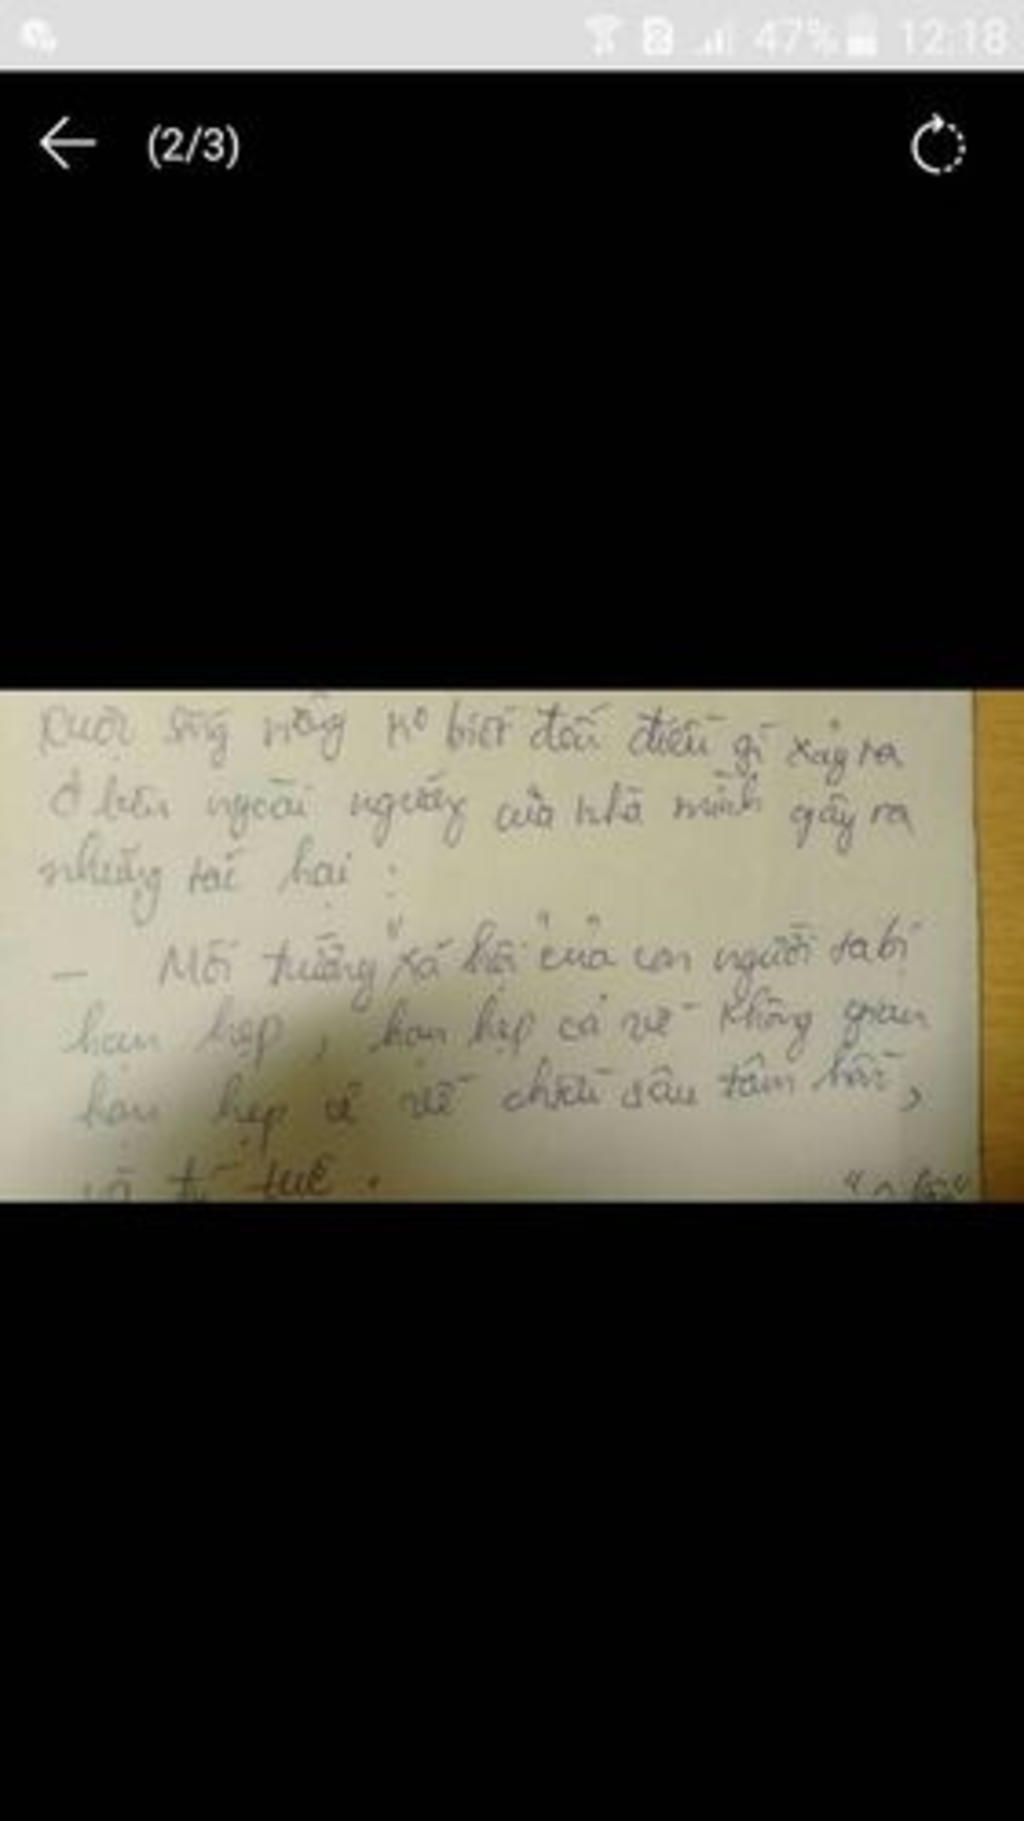 47% 12:18
(2/3)
Cuộc sống riêng ko biết đến điều gì xảy ra
ở bên ngoài ngưỡng cửa nhà mình gây ra
những tác hại :
- Môi trường "xã hội" của con người ta bị
hạn hẹp, hạn hẹp cả về không gian
hạn hẹp cả về chiều sâu tâm hồn,
và trí tuệ.